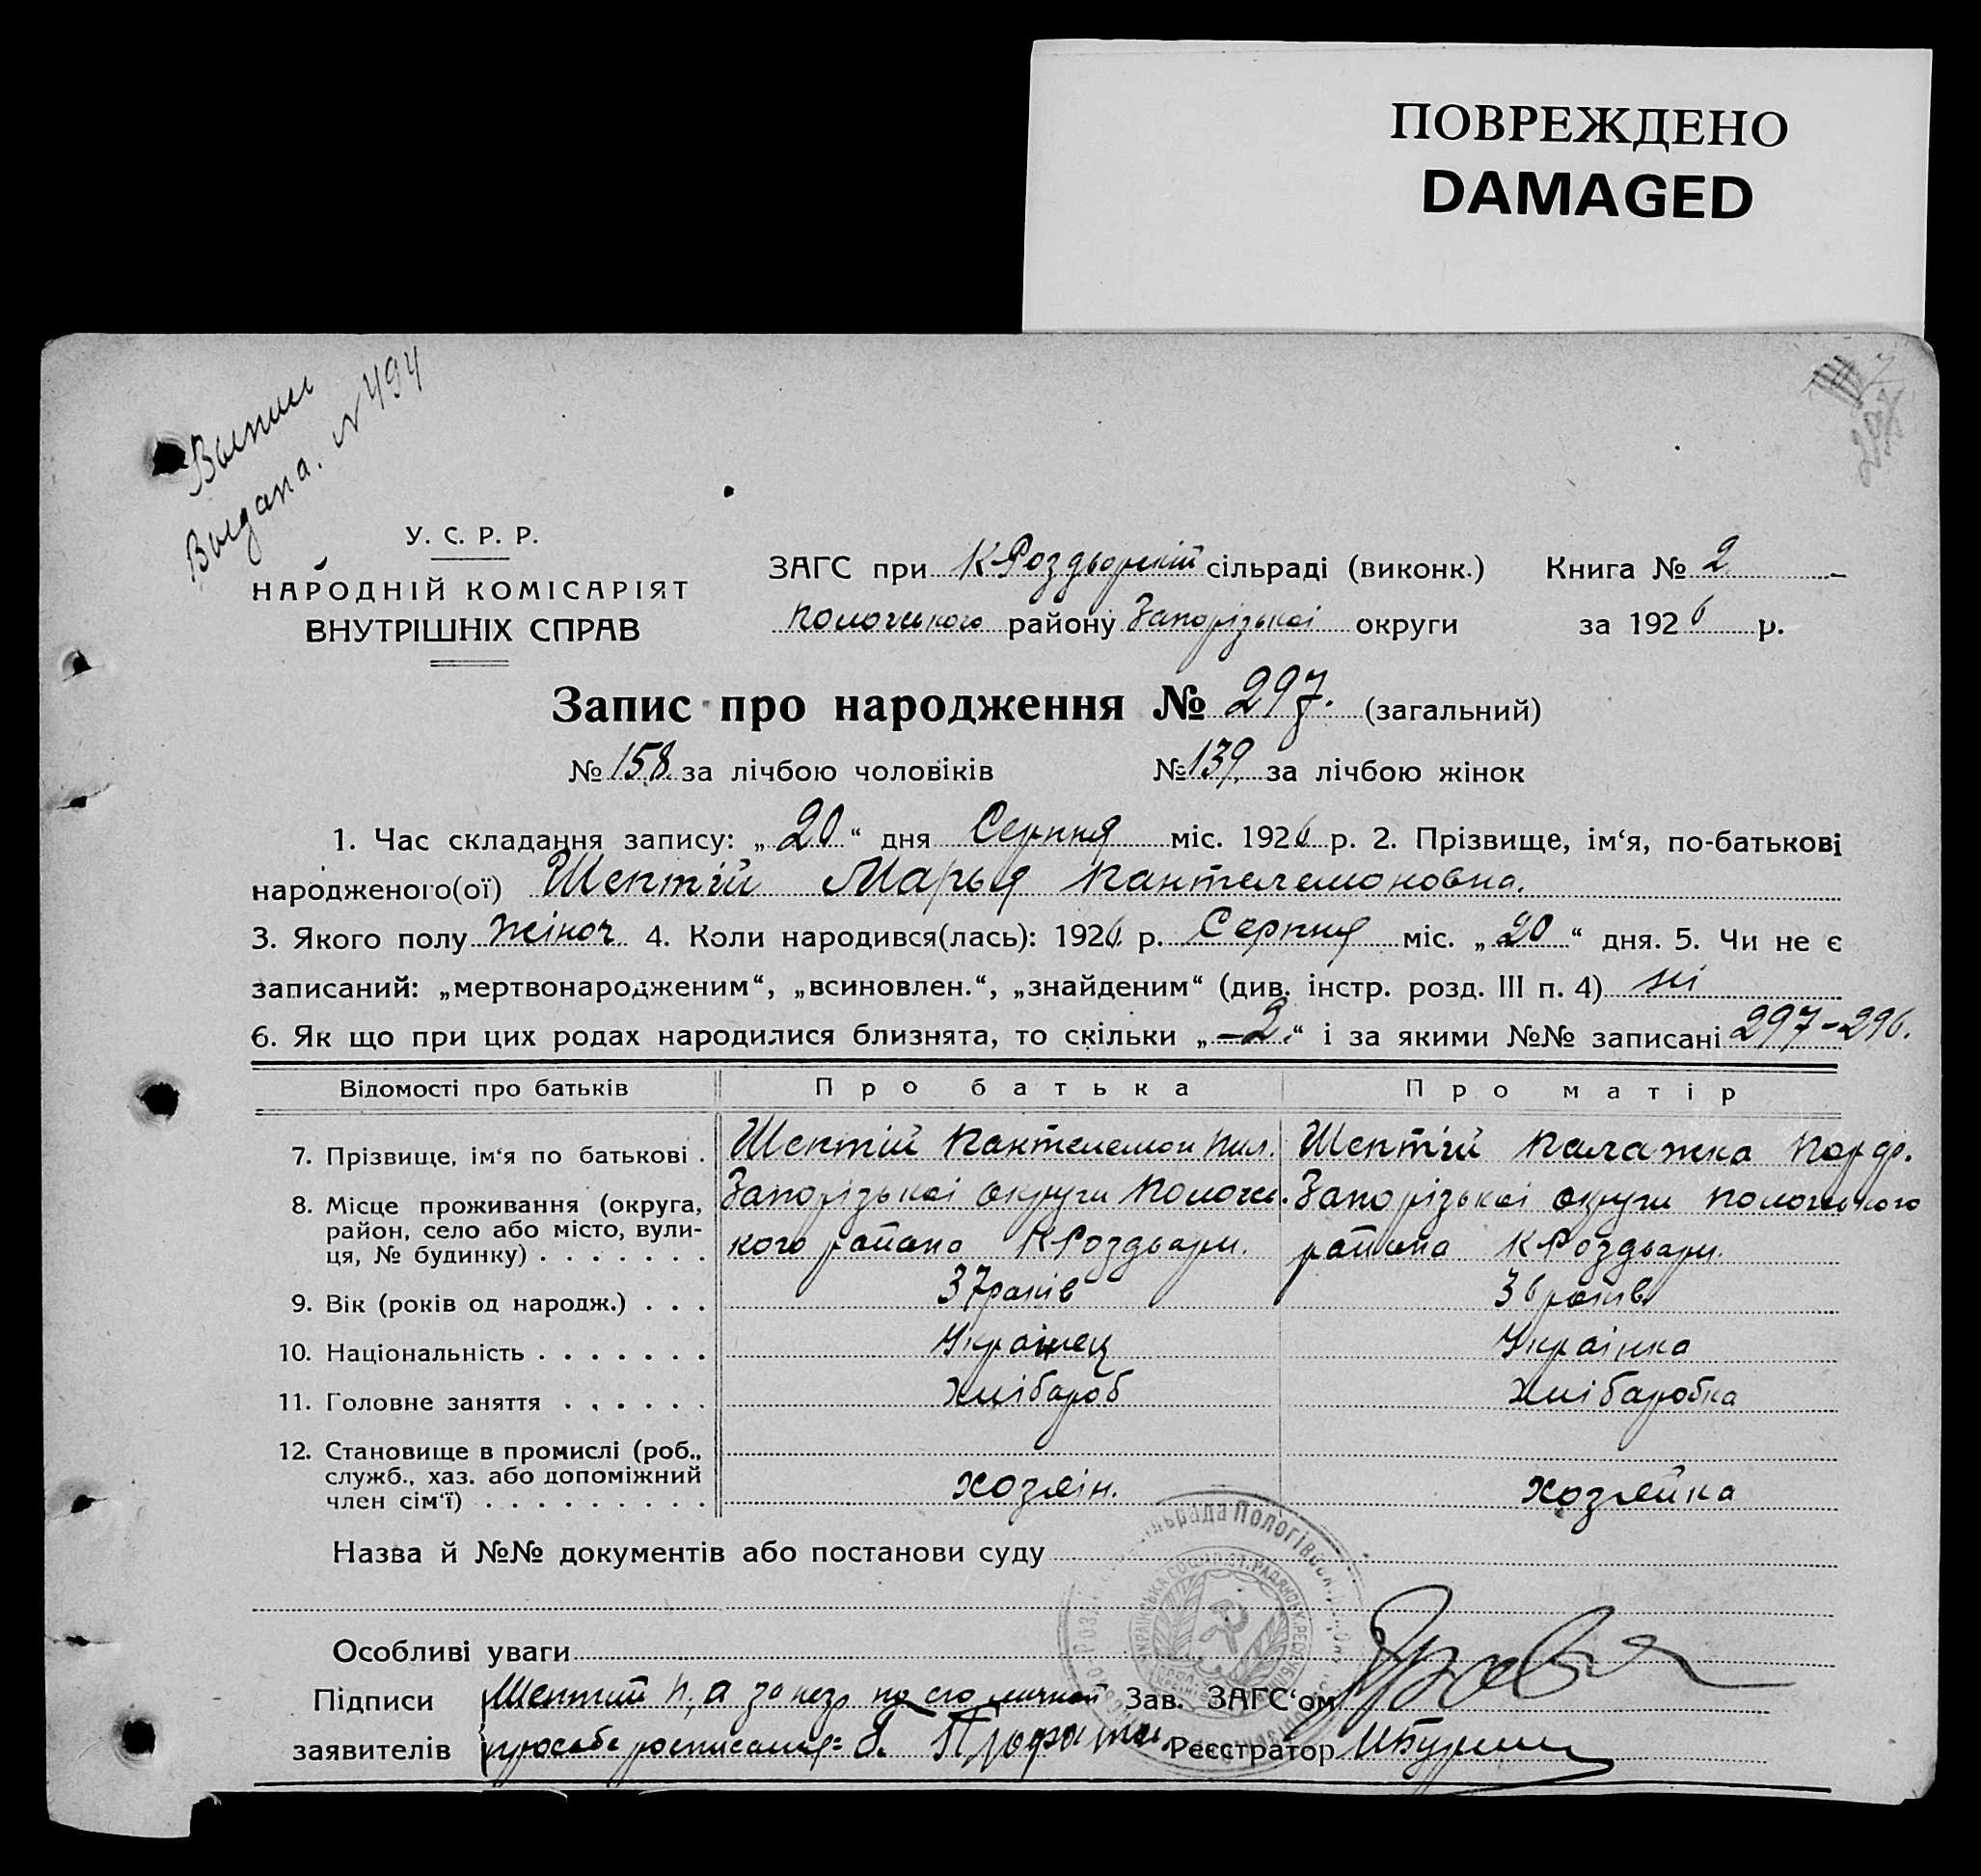 ПОВРЕЖДЕНО
DAMAGED
Выпись
Выдана. №494
297
У. С. Р. Р.
НАРОДНІЙ КОМІСАРІЯТ
ВНУТРІШНІХ СПРАВ
ЗАГС при К-Роздьорскій сільраді (виконк.) Книга № 2
Пологського району Запорізькоі округи за 1926 р.
Запис про народження № 297. (загальний)
№ 158 за лічбою чоловіків № 139 за лічбою жінок
1. Час складання запису: „ 20 “ дня Серпня міс. 1926 р. 2. Прізвище, ім‘я, по-батькові
народженого(ої) Шептій Марья Пантелемоновна.
3. Якого полу жіноч 4. Коли народився(лась): 1926 р. Серпня міс. „ 20 “ дня. 5. Чи не є
записаний: „мертвонародженим“, „всиновлен.“, „знайденим“ (див. інстр. розд. III п. 4) ні
6. Як що при цих родах народилися близнята, то скільки „ -2. “ і за якими №№ записані 297-296.
Відомості про батьків Про батька Про матір
7. Прізвище, ім‘я по батькові . Шептій Пантелемон Пил. Шептій Палажка Порф.
8. Місце проживання (округа, район, село або місто, вулиця, № будинку) . . . . . . . Запорізькоі округи Пологс. Запорізькоі округи Пологського
кого района К Роздьори. района К Роздьори.
9. Вік (років од народж.) . . . 37 років 36 років
10. Національність . . . . . . . Украінец Украінка
11. Головне заняття . . . . . . Хлібороб Хліборобка
12. Становище в промислі (роб., служб., хаз. або допоміжний член сім‘ї) . . . . . . . . . хозяін. хозяйка
Назва й №№ документів або постанови суду
Особливі уваги
Підписи Шептий П, а за негр по его личной Зав. ЗАГС‘ом
заявителів просьбе росписался Реєстратор